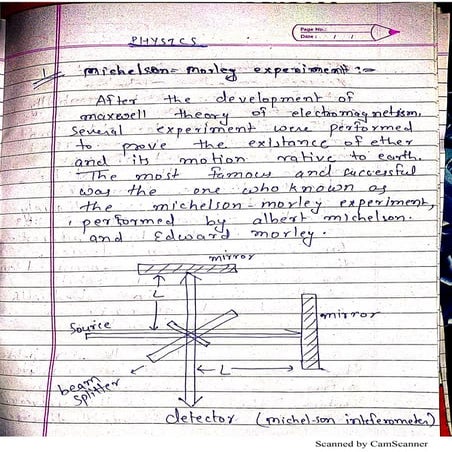 Page No.:
Date: / /
PHYSICS
1. michelson- morley experiment :-
After the development of
maxwell theory of electromagnetism,
several experiment were performed
to prove the existance of ether
and its motion rative to earth.
The most famous and successful
was the one who known as
the michelson-morley experiment,
performed by albert michelson.
and Edward morley.
mirror
L
source
mirror
L
beam
splitter
detector (michel-son inteferometer)
Scanned by CamScanner